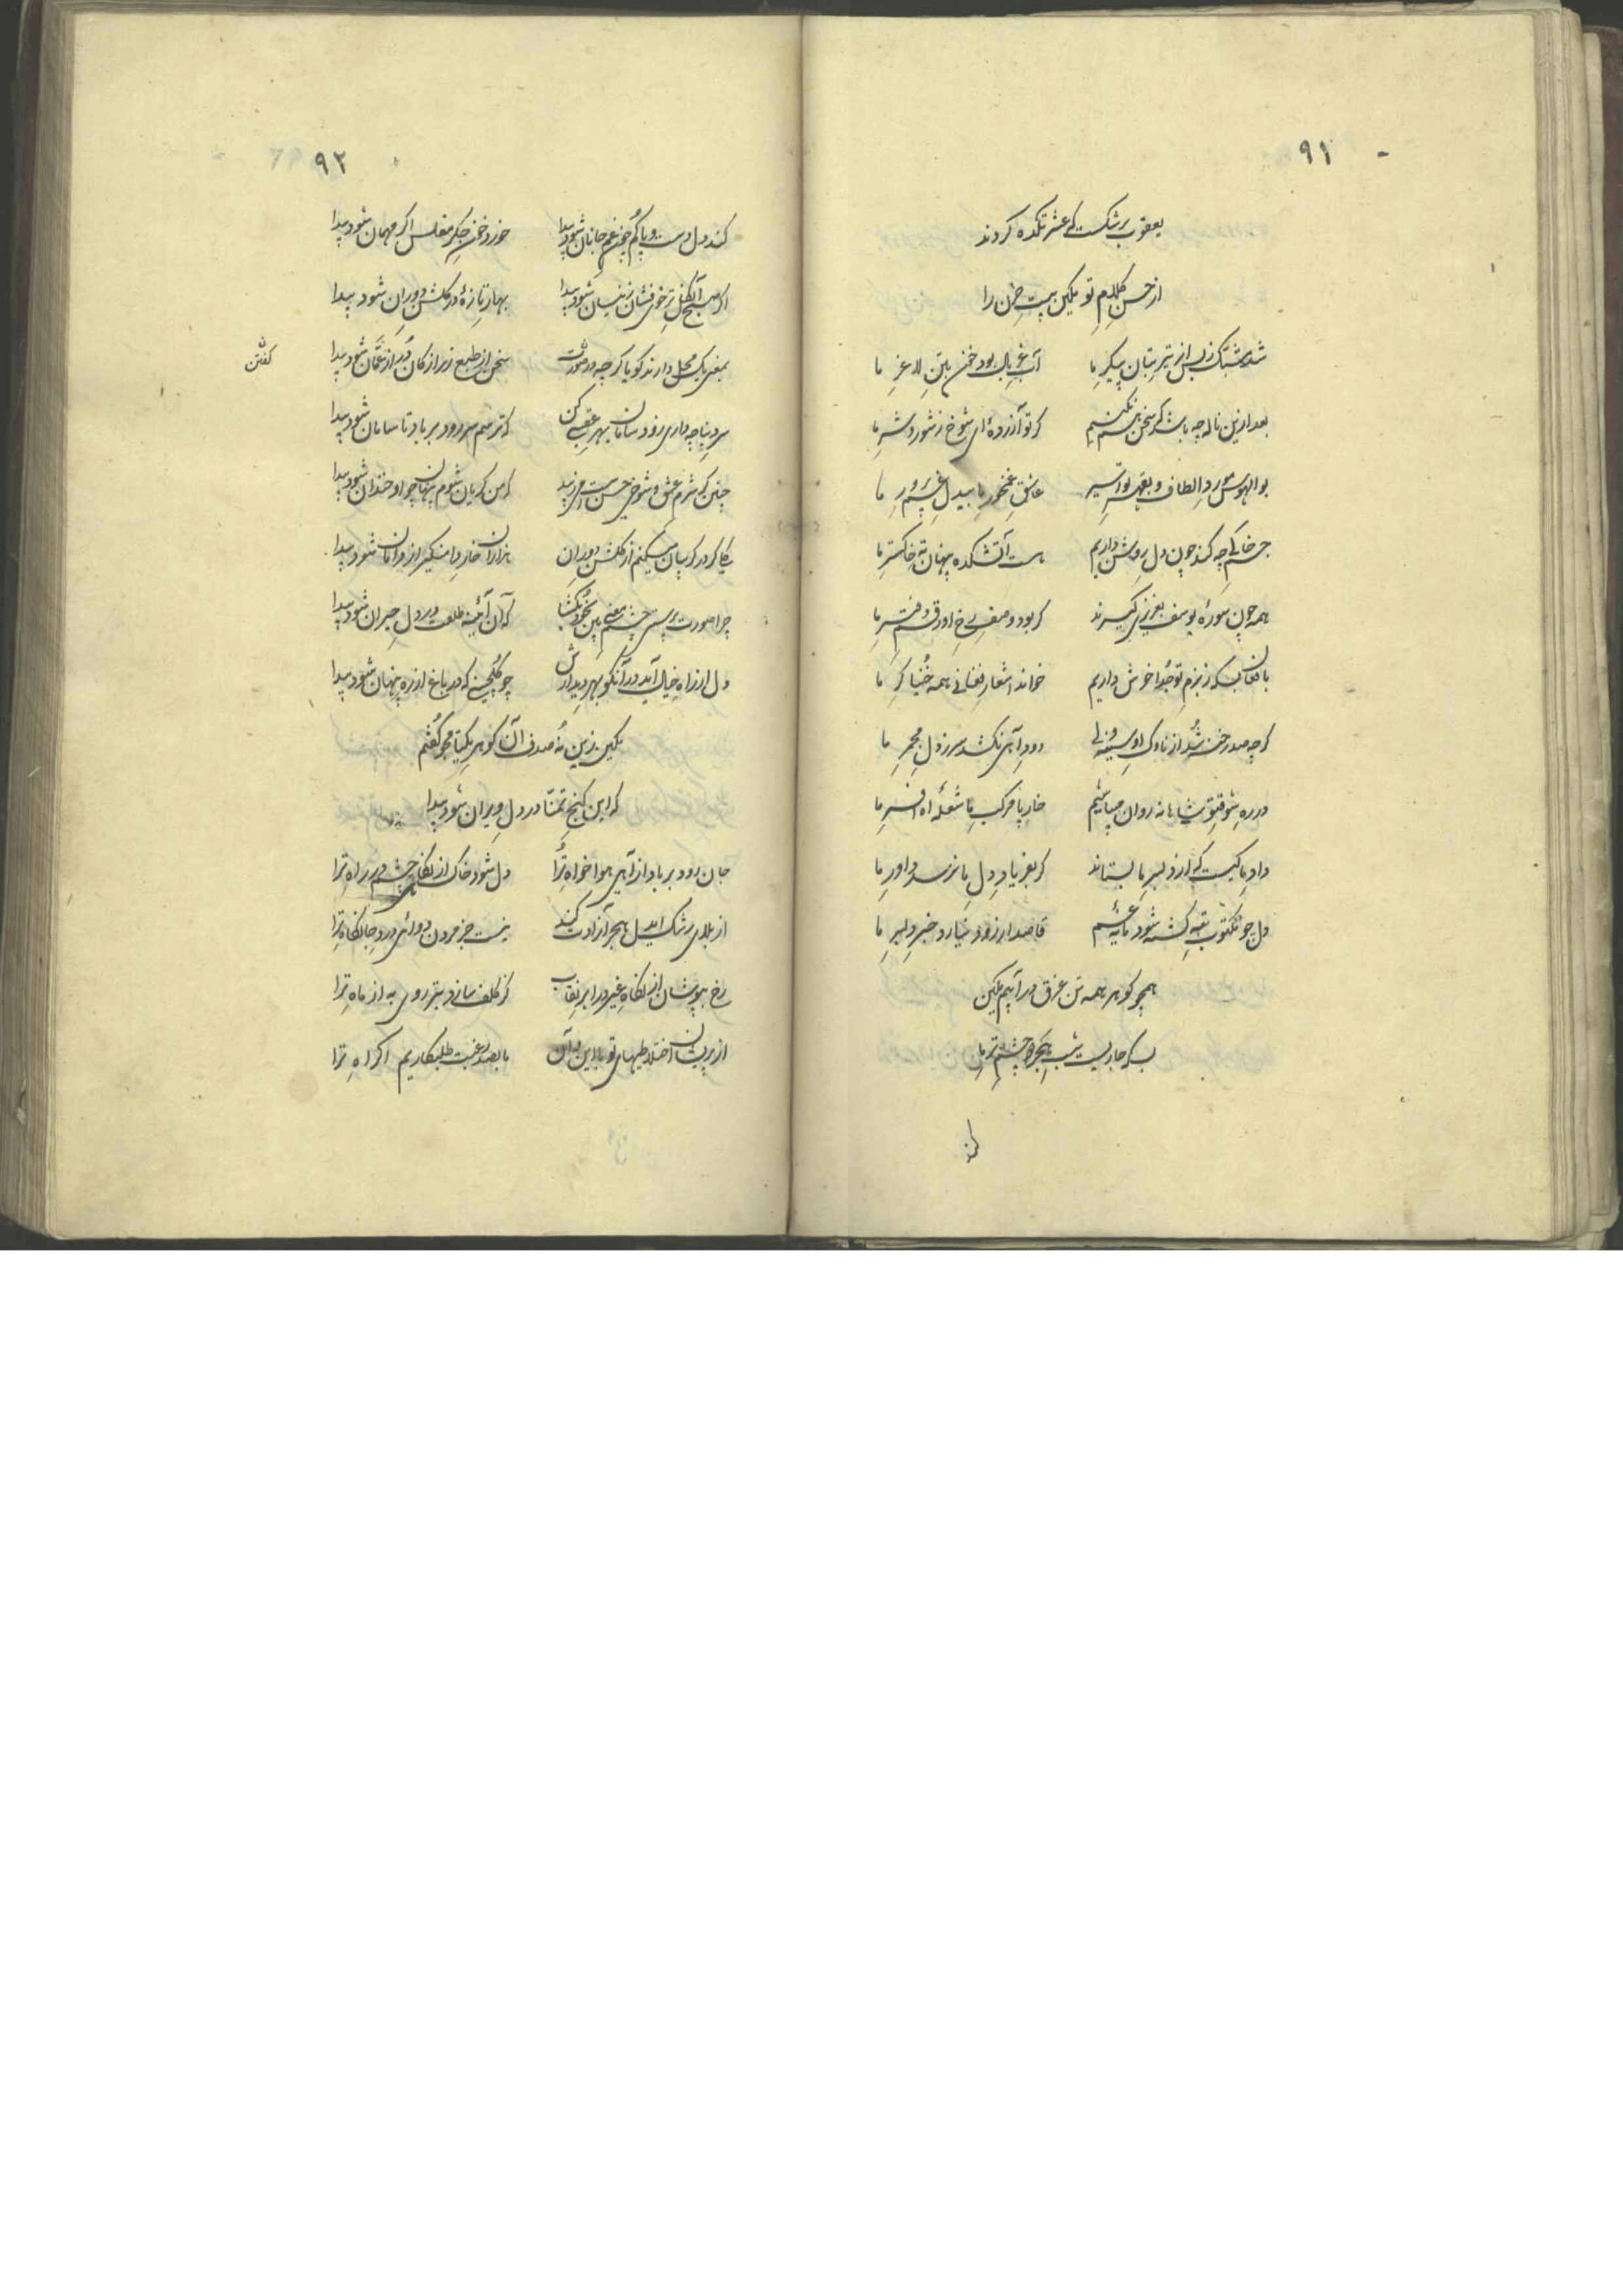 ۹۱
یعقوب برشکست کے عشرتکده کردند
از حسن کلام تو یکین بیت حزن را
شد مشبک ز بس از تیر بتان پیکر ما
آب غربال بود خون بتن لاغر ما
بعد ازین ناله چه باشد که سخن هم نکنیم
گر تو آزرده ای شوخ ز شور و شر ما
بوالهوس مورد الطاف و بقهر تو اسیر
عاشق غمخور ما بیدل غم پرور ما
خانے چه کند چون دل روشن داریم
هست آتشکده پنهان ته خاکستر ما
همه چون سورهٔ یوسف بعزیزی گیرند
گر بود وصف رخ او رقم دفتر ما
با فغان بسکه ز بزم تو جدا خوش داریم
خواند اشعار فغانی همه خنیاگر ما
گرچه صد رخنه شد از ناوک او سینه ولے
دود آهی نکشد سر ز دل مجمر ما
در ره شوق تو شاهانه روان میباشیم
خار پا مرکب ما شعلهٔ آه افسر ما
داد ما کیست که از دلبر ما بستاند
گر بفریاد دل ما نرسد داور ما
دل چو مکتوب بته گشته شود مایهٔ غم
قاصد ار زود نیارد خبر دلبر ما
همچو گوهر همه تن غرق در آبیم یکین
بسکه جاریست شب هجر ز چشم تر ما
کند
۹۲
کند دل دست و پا گم چون غم جانان شود پیدا
خورد خون جگر مفلس اگر مهمان شود پیدا
اگر صبح آن گل تر خوی فشان زینسان شود پیدا
بهار تازهٔ در گلشن دوران شود پیدا
بمعنی یک محل دارند گویا گرچه در صورت
سخن از طبع زر از کان در از عمان شود پیدا
گفتن
سر دنیا چه داری رو و سامان بهر عقبی کن
که ترسم سر رود بر باد تا سامان شود پیدا
چنین که شرم عشق و شوخی حسن ست افزید
که من گریان شوم پنهان چو او خندان شود پیدا
یکی گر در گریبان میکنم از گلشن دوران
هزاران خار دامنگیر از دامان شود پیدا
چرا صورت پرستی چشم معنی بین بخود بکشا
که آن آئینه طلعت در دل حیران شود پیدا
دل از راه خیال آید در آن کو بهر دیدارش
چو گلچینی که در باغ از ره پنهان شود پیدا
یکین زین نه صدف آن گوهر یکتا مجو گفتم
که این گنج تمنا در دل ویران شود پیدا
جان رود بر باد از آهی هوا خواه ترا
دل شود خاک از نگاه چشم در راه ترا
از بلای رشک ایدل هجر آزادت کند
نیست جز مردن دوائی درد جانکاه ترا
رخ بپوشان از نگاه غیر در ابر نقاب
کز کلف سازد بتر روی به از ماه ترا
از پریشان اختلاطیهای تو با این و آن
ما بصد رغبت طلبگاریم اکراه ترا